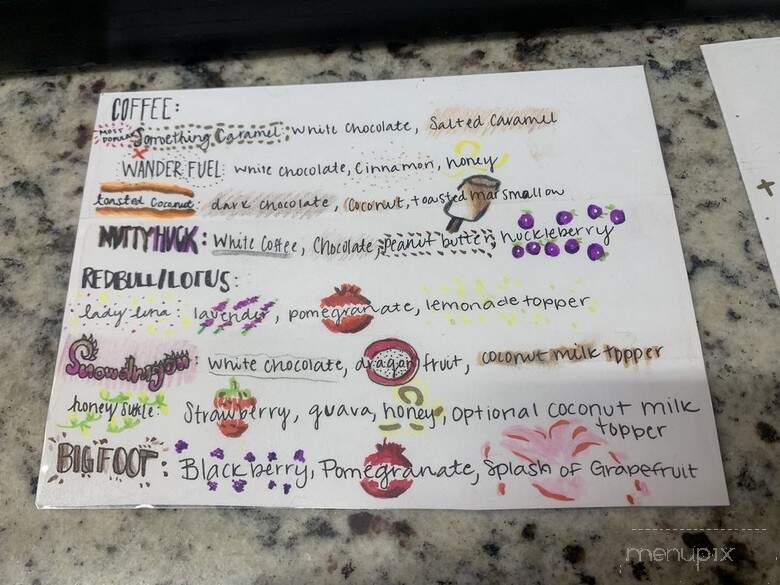 COFFEE:
MOST POPULAR Something Caramel: White Chocolate, Salted Caramel
WANDER FUEL: white chocolate, Cinnamon, honey
toasted Coconut: dark chocolate, Coconut, toasted marshmallow
NUTTY HUCK: White Coffee, Chocolate, Peanut butter, huckleberry
REDBULL/LOTUS:
lady luna: lavender, pomegranate, lemonade topper
Snowdragon: White chocolate, dragon fruit, coconut milk topper
honey Sukle: Strawberry, guava, honey, Optional coconut milk
topper
BIGFOOT: Blackberry, Pomegranate, Splash of Grapefruit
menupix